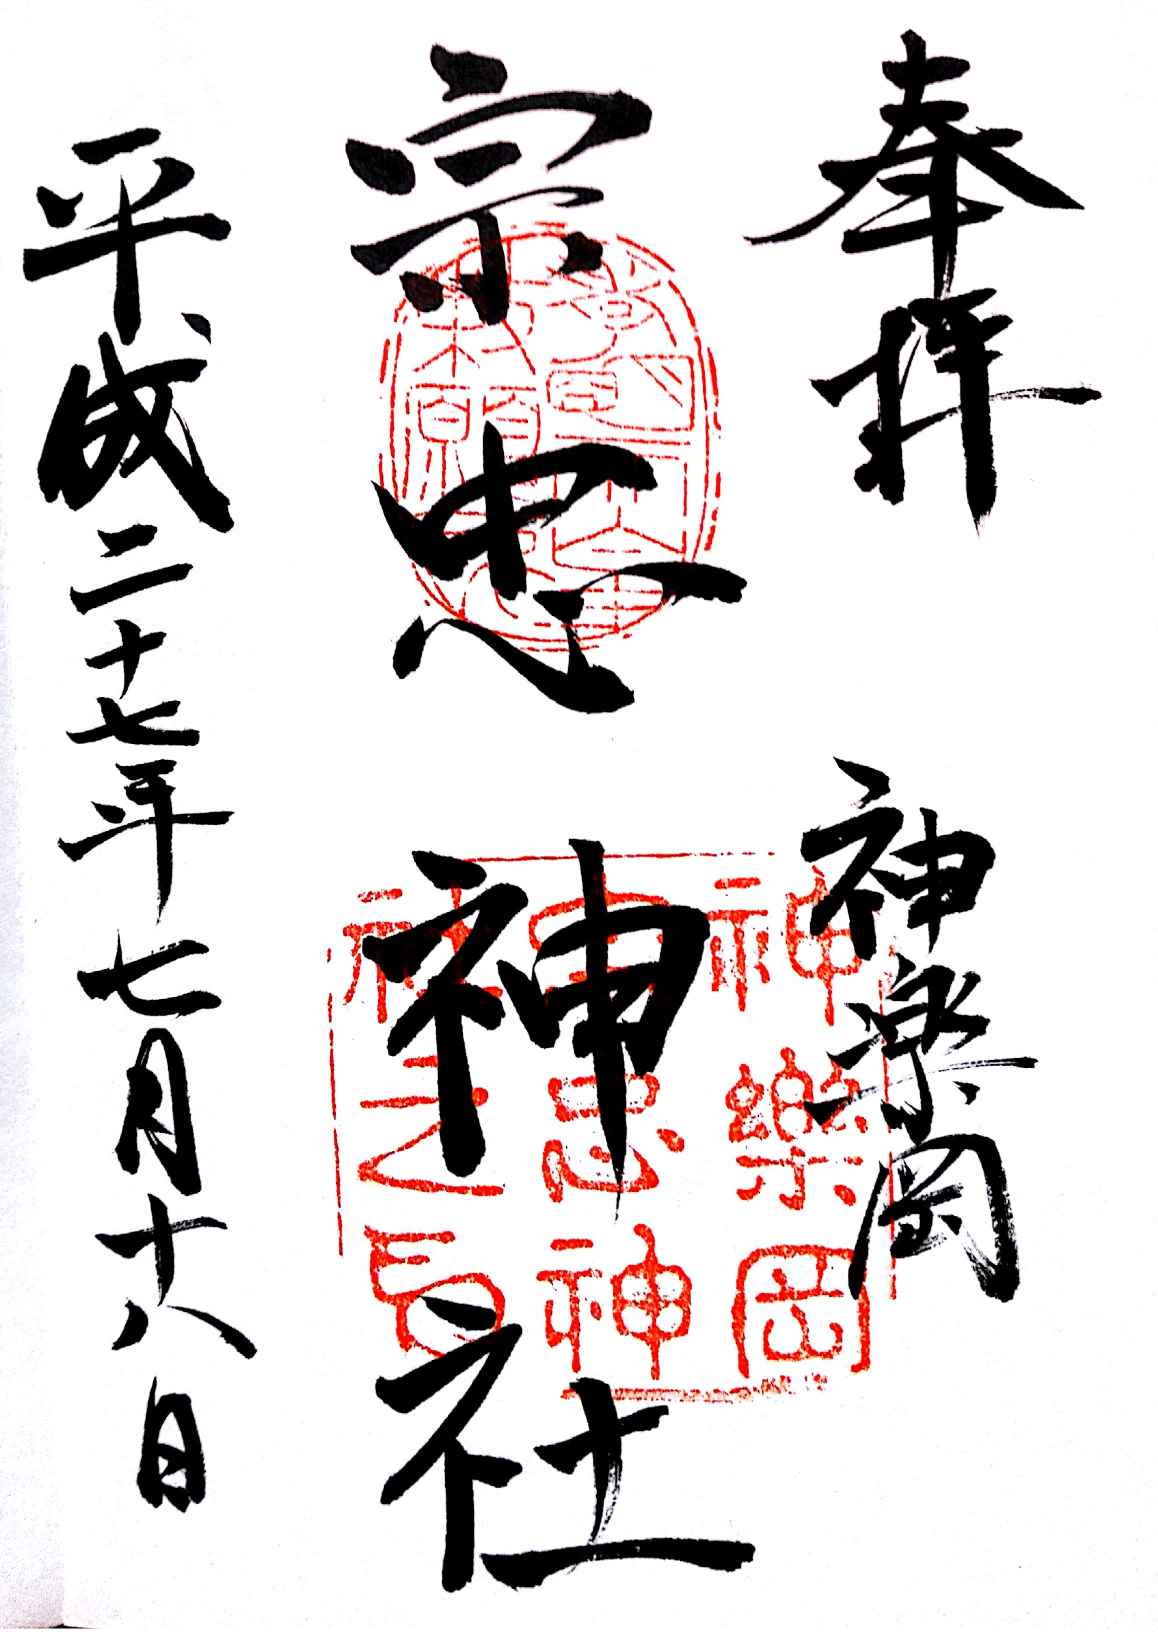 奉拝
神楽岡
宗忠神社
平成二十七年七月十八日
神樂岡
宗忠神
社之印